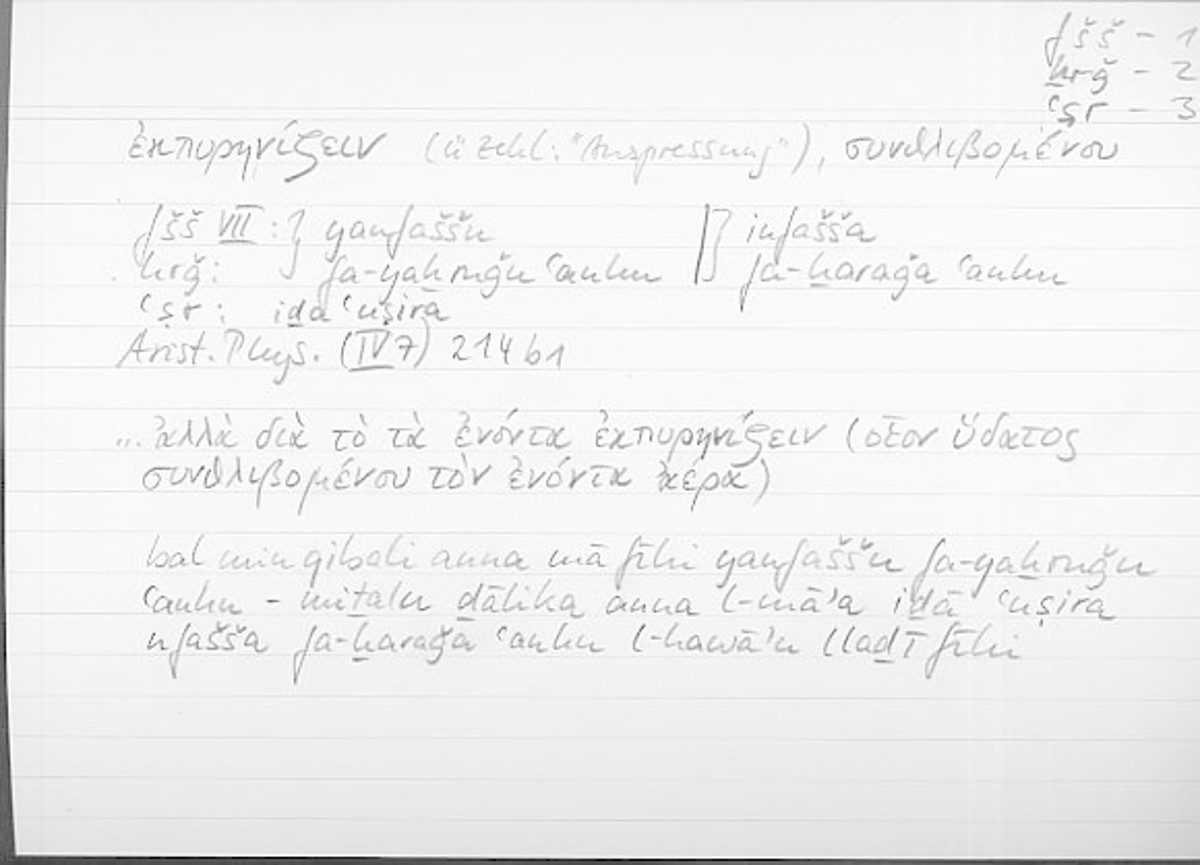 fšš – 1
ḫrǧ – 2
ʿṣr – 3
ἐκπυρηνίζειν (ü Zekl: "Auspressung"), συνθλιβομένου
fšš VII : } yanfaššu ] infašša
ḫrǧ: fa-yaḫruǧu ʿanhu fa-ḫaraǧa ʿanhu
ʿṣr : iḏā ʿuṣira
Arist. Phys. (IV 7) 214 b1
... ἀλλὰ διὰ τὸ τὰ ἐνόντα ἐκπυρηνίζειν (οἷον ὕδατος
συνθλιβομένου τὸν ἐνόντα ἀέρα)
bal min qibali anna mā fīhi yanfaššu fa-yaḫruǧu
ʿanhu – miṯalu ḏālika anna l-māʾa iḏā ʿuṣira
nfašša fa-ḫaraǧa ʿanhu l-hawāʾu llaḏī fīhi